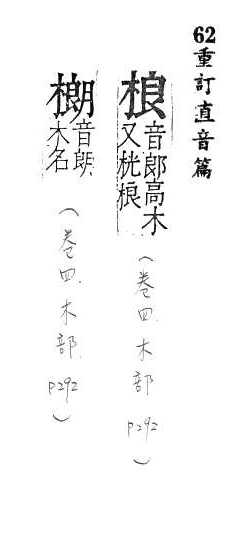 62重訂直音篇
桹音郎高木又桄桹
（卷四.木部 P292）
樃音朗木名
（卷四.木部 P292）